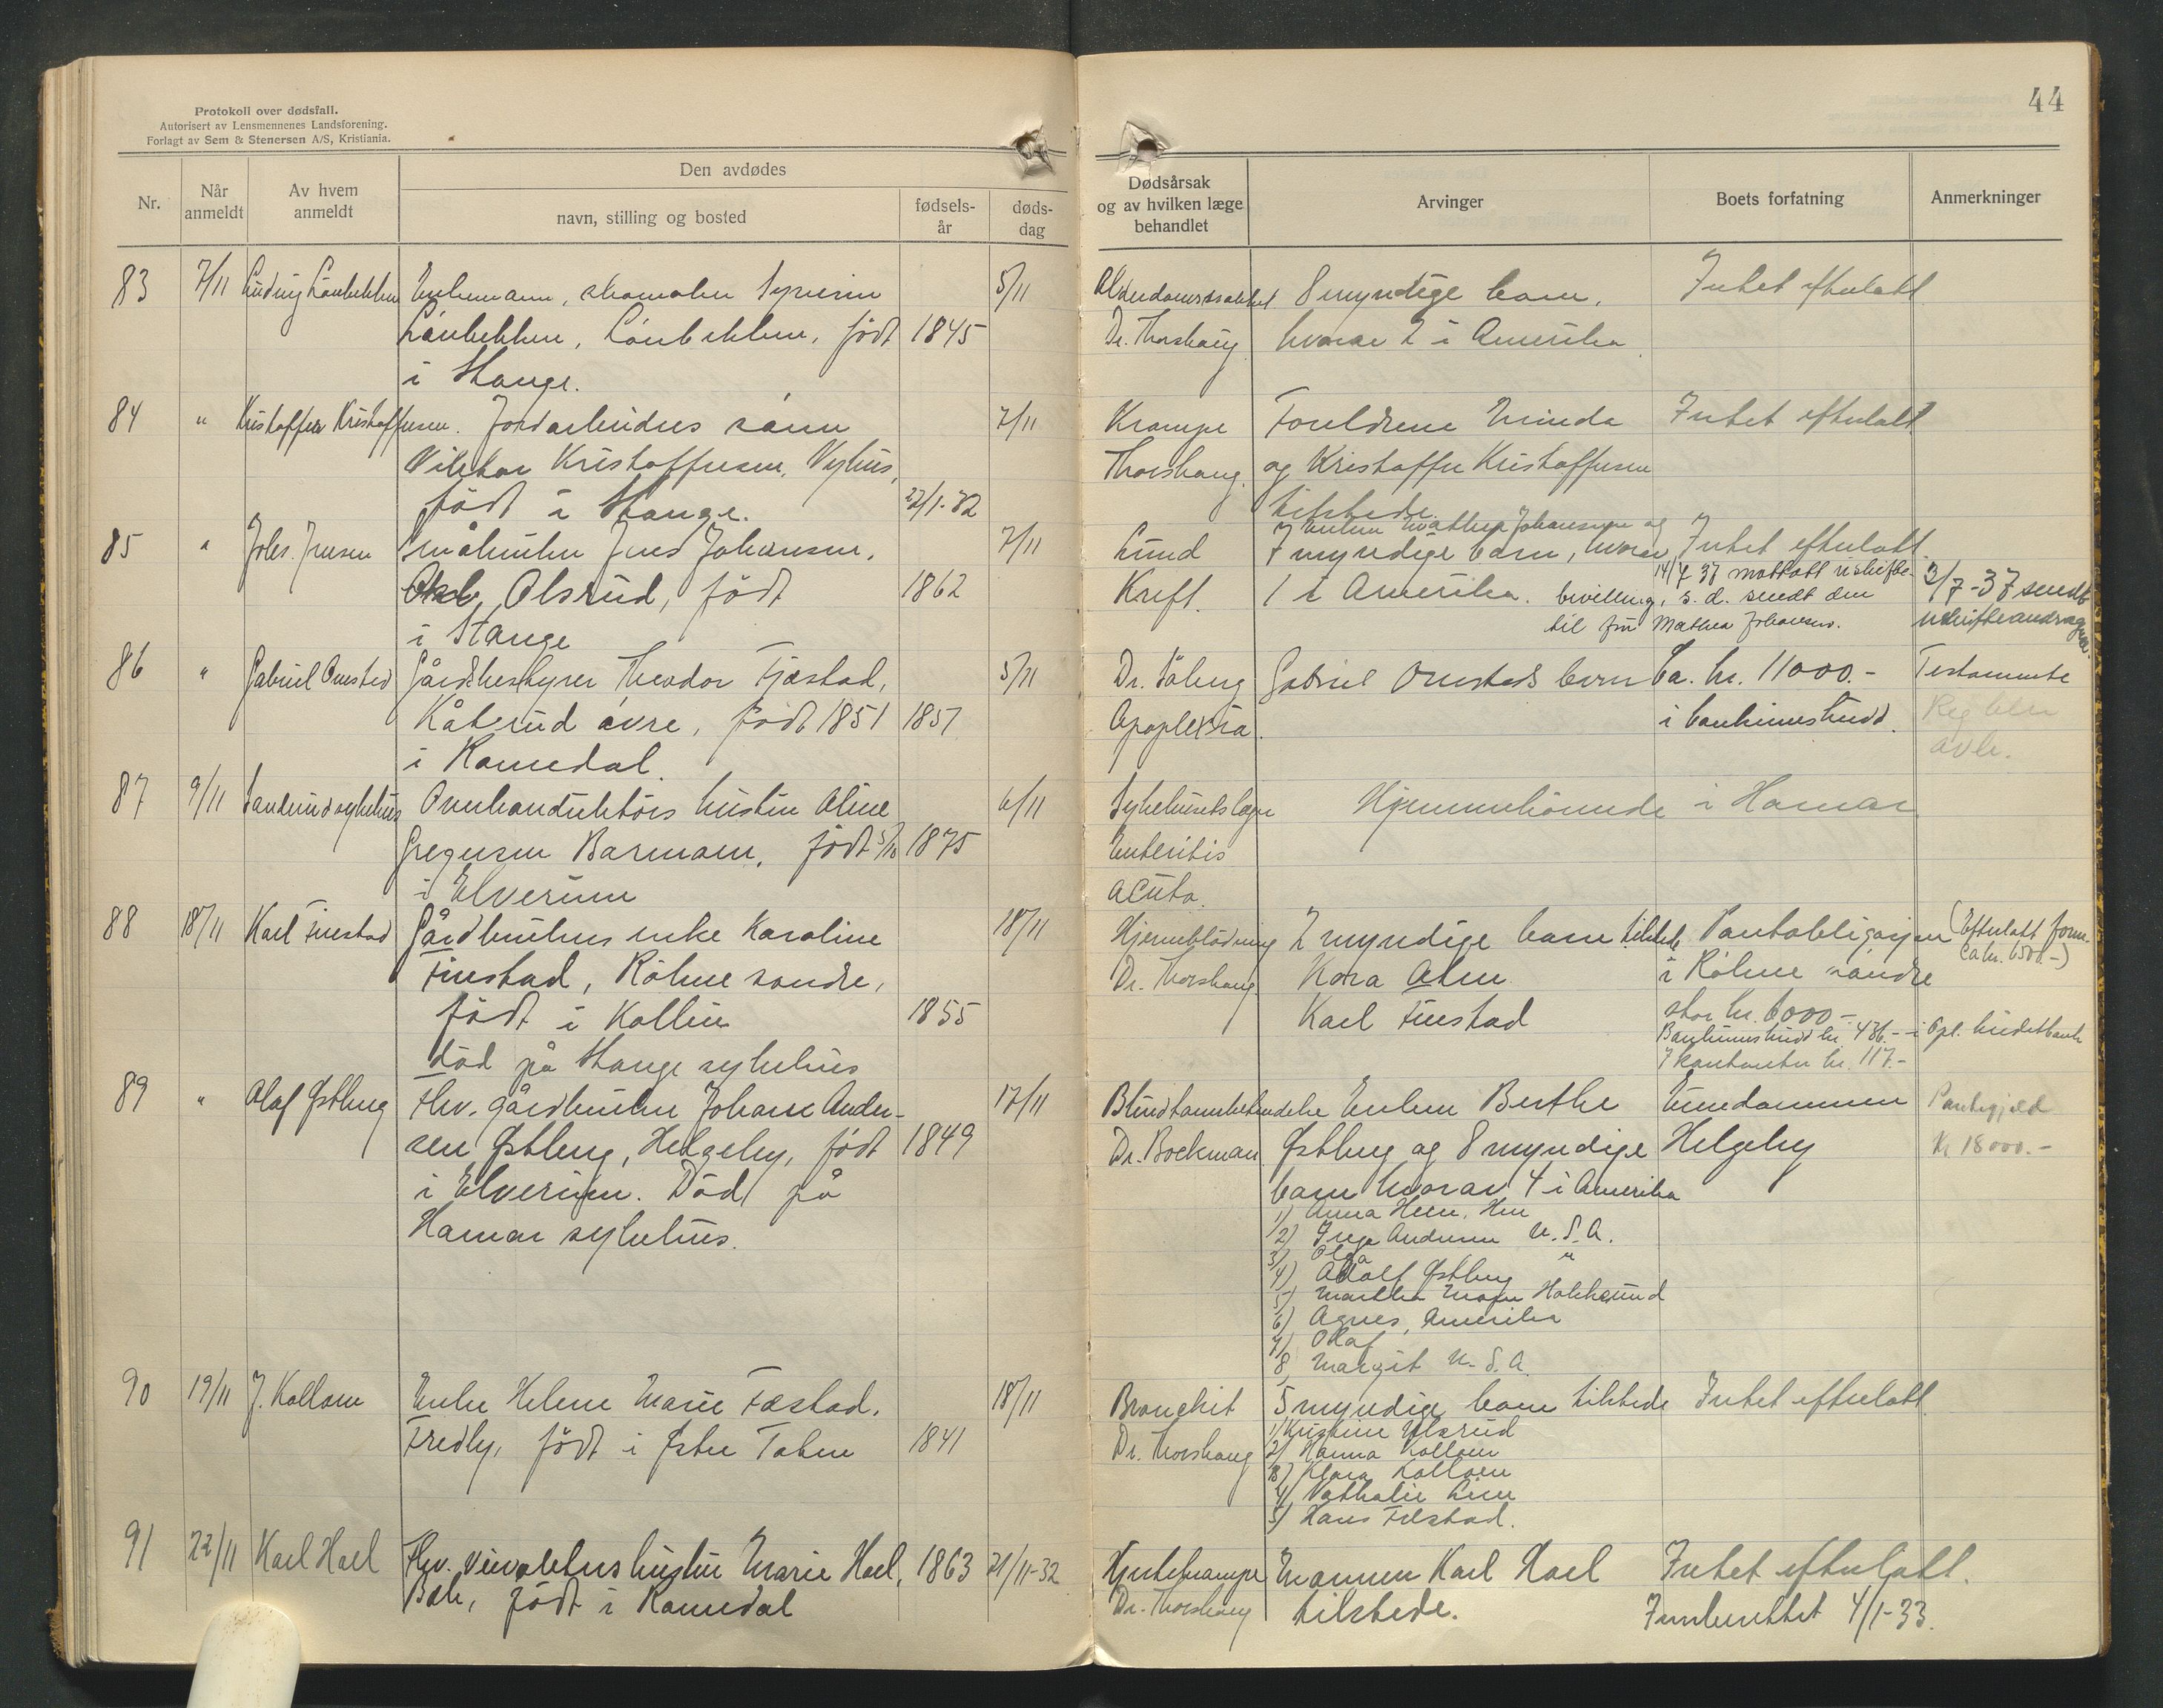 Protokoll over dødsfall.
Autorisert av Lensmennenes Landsforening.
Forlagt av Sem & Stenersen A/S, Kristiania.
44
Nr.
Når anmeldt
Av hvem anmeldt
Den avdødes
navn, stilling og bosted
fødsels-år
døds-dag
Dødsårsak og av hvilken læge behandlet
Arvinger
Boets forfatning
Anmerkninger
83 7/11 Enkemann, skomaker Syverin 5/11 8 myndige barn, Intet efterlatt
født 1845 Dr. Thorshaug hvorav 2 i Amerika
i Stange.
84 " Kristoffer Kristoffersen. Jordarbeiders sønn 7/11 Krampe Foreldrene Minda Intet efterlatt
Viktor Kristoffersen, Nyhus, Thorshaug. og Kristoffer Kristoffersen
født i Stange. 22/1-32 tilstede.
Enken Mathea Johansen og
85 " Johs. Jensen Småbruker Jens Johansen, 7/11 Lund 7 myndige barn, hvorav Intet efterlatt.
Olsrud, født 1862 Kreft. 1 i Amerika. 14/7 37 mottatt uskifte- 3/7-37 sendt
bevilling, s. d. sendt den
i Stange til fru Mathea Johansen. uskifteandragende.
86 " Gabriel Omsted Gårdbestyrer Theodor Fjæstad, 5/11 Dr. Gabriel Omsteds barn Ca. kr. 11000.- Testamente
Kåterud øvre, født 1851 1851 Apoplexia. i bankinnskudd.
i Romedal.
87 9/11 Sanderud sykehus Ovnkonduktørs hustru Oline 6/11 Sykehusets læge Hjemmehörende i Hamar
Gregersen Barmoen, født 5/10 1875 Enteritis
i Elverum acuta.
88 18/11 Karl Finstad Gårdbrukers enke Karoline 18/11 Hjerneblödning 2 myndige barn tilstede Pantobligasjon (Efterlatt form.
ca kr. 6500.-)
Finstad, Röhne søndre, Dr. Thorshaug Kara Alm i Röhne søndre
født i Vallset 1855 Karl Finstad stor kr. 6000.-
Bankinnskudd kr. 436.- i Opl. kreditbank
død på Stange sykehus I kontanter kr. 117.-
89 " Olaf Østberg Fhv. gårdbruker Johan Ander- 17/11 Blindtarmbetendelse Enken Berthe Eiendommen Pantegjeld
sen Østberg, Helgeby, født 1849 Dr. Bockman. Østberg og 8 myndige Helgeby Kr 18000.-
i Elverum. Död på barn hvorav 4 i Amerika
Hamar sykehus.
1) Anna Heen, Her
2) Inga Andersen U.S.A.
3) Olga "
4) Adolf Østberg
5) Martha Moen Hokksund
6) Agnes, Amerika
7) Olaf
8 Margit U.S.A.
90 19/11 J. Kolloen Enke Helene Marie Fæstad, 18/11 Bronchit 5 myndige barn tilstede Intet efterlatt.
Fredly, født i Østre Toten 1841 Dr. Thorshaug
1) Kristine Ulsrud
2) Hanna Kolloen
3) Klara Kolloen
4) Nathalie Lien
5) Hans Filstad.
91 22/11 Karl Hoel Fhv. hustru Marie Hoel, 1863 21/11-32 Hjertekrampe Mannen Karl Hoel Intet efterlatt.
født i Romedal Dr. Thorshaug tilstede. Innberettet 4/1-33.